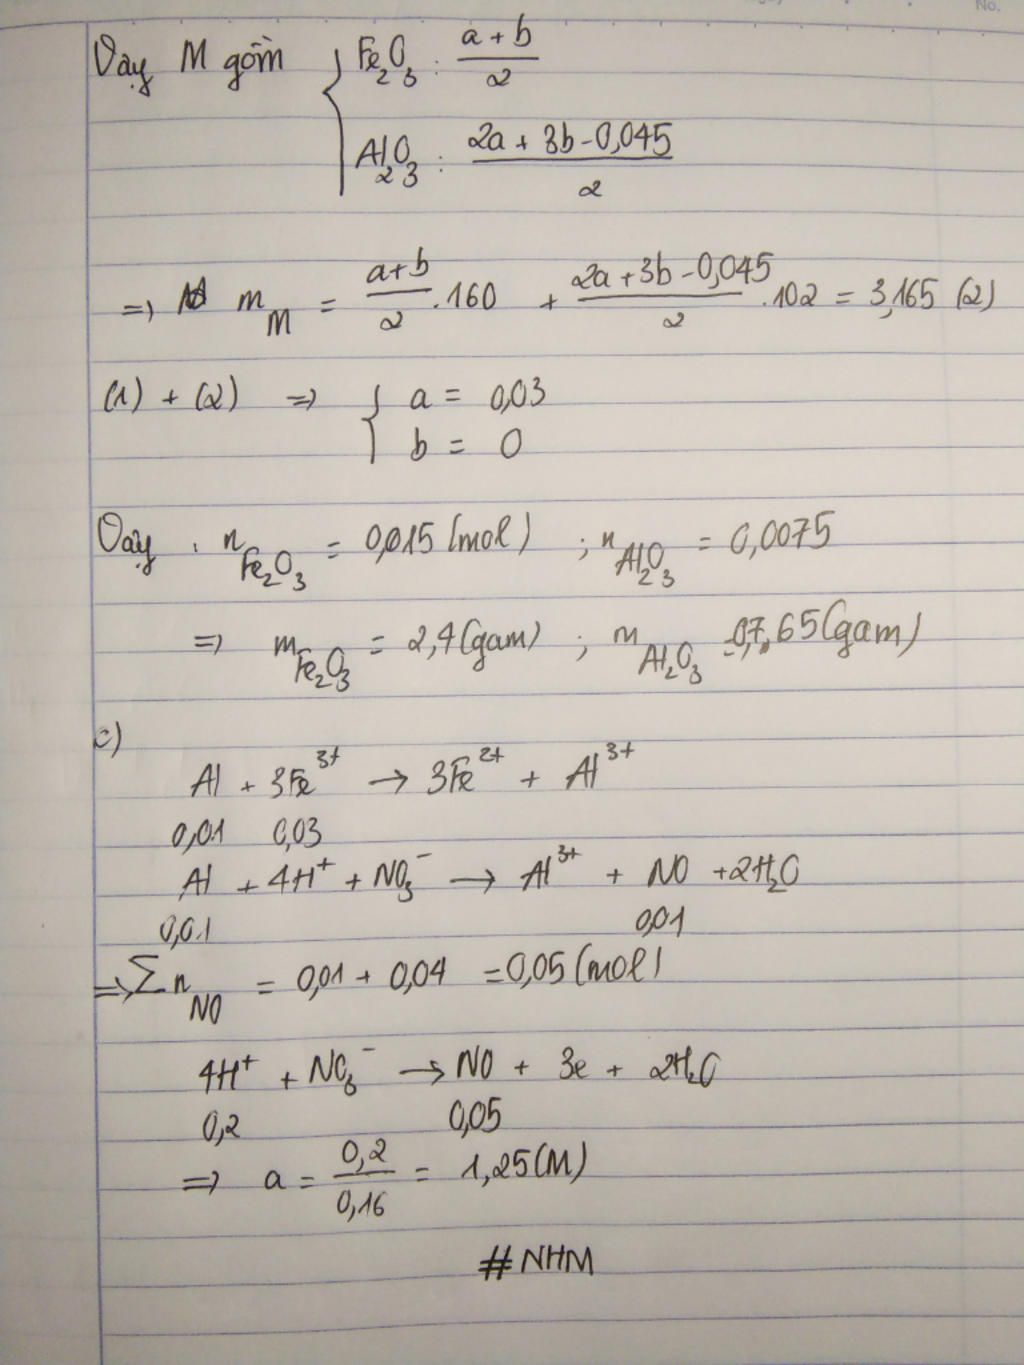 No.
Vậy M gồm { Fe₂O₃ : (a+b)/2
Al₂O₃ : (2a + 3b - 0,045)/2
=> m_M = (a+b)/2 .160 + (2a+3b-0,045)/2 .102 = 3,165 (2)
(1) + (2) => { a = 0,03
b = 0
Vậy : n_Fe₂O₃ = 0,015 (mol) ; n_Al₂O₃ = 0,0075
=> m_Fe₂O₃ = 2,4 (gam) ; m_Al₂O₃ = 0,765 (gam)
c)
Al + 3Fe³⁺ → 3Fe²⁺ + Al³⁺
0,01 0,03
Al + 4H⁺ + NO₃⁻ → Al³⁺ + NO + 2H₂O
0,01 0,01
=> Σn_NO = 0,01 + 0,04 = 0,05 (mol)
4H⁺ + NO₃⁻ → NO + 3e + 2H₂O
0,2 0,05
=> a = 0,2/0,16 = 1,25 (M)
# NHM